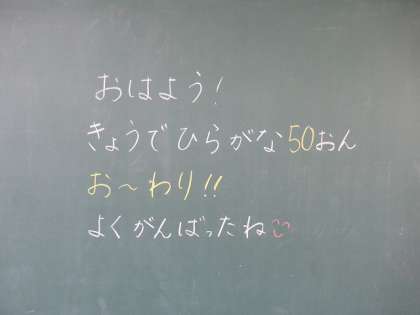 おはよう!
きょうでひらがな50おん
お〜わり!!
よくがんばったね